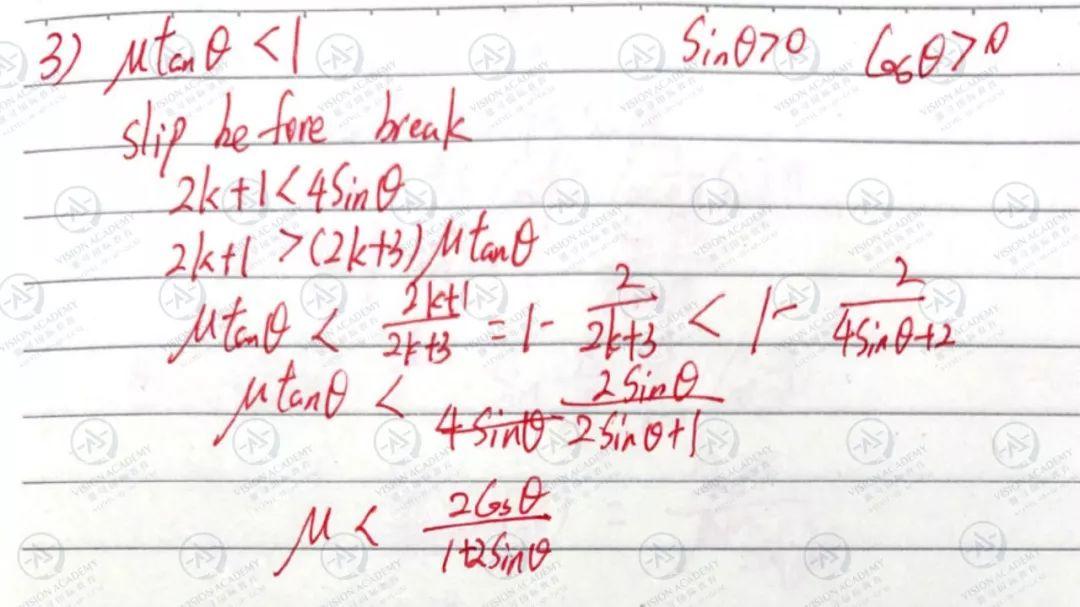 3) μtanθ < 1 Sinθ>0 Cosθ>0
slip before break
2k+1<4Sinθ
2k+1 >(2k+3)μtanθ
μtanθ < \frac{2k+1}{2k+3} = 1 - \frac{2}{2k+3} < 1 - \frac{2}{4Sinθ+2}
μtanθ < \frac{2Sinθ}{2Sinθ+1}
μ < \frac{2Cosθ}{1+2Sinθ}
VISION ACADEMY